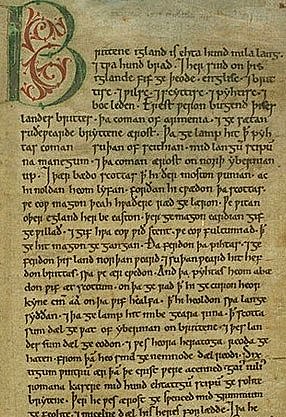 Brittene igland is ehta hund mila lang.
⁊ tƿa hund brad. ⁊ her sind on þis
iglande fif geþeode. englisc. ⁊ brit
tisc. ⁊ ƿilsc. ⁊ scyttisc. ⁊ pyhtisc. ⁊
boc leden. Erest ƿeron bugend þises
landes brittes. þa coman of armenia. ⁊ gesætan
suðeƿearde bryttene ærost. Þa gelamp hit ꝥ pyh
tas coman suþan of scithian. mid langū scipū
na manegum. ⁊ þa coman ærost on norþ ybernian
up. ⁊ þær bædo scottas ꝥ hi ðer moston ƿunian. ac
hi noldan heom lyfan. forðan hi cƿædon þa scottas.
ƿe eoƿ magon þeah hƿaðere ræd gelæron. Ƿe ƿitan
oþer egland her be easton. þer ge magon eardian gif
ge ƿillað. ⁊ gif hƿa eoƿ ƿiðstent. ƿe eoƿ fultumiað. ꝥ
ge hit magon gegangan. Ða ferdon þa pihtas. ⁊ ge
ferdon þis land norþanƿeard. ⁊ suþanƿeard hit hef
don brittas. sƿa ƿe ær cƿedon. And þa pyhtas heom abæ
don ƿif æt scottum. on þa gerad ꝥ hi gecuron heor
kyne cinn aa on þa ƿif healfa. ꝥ hi heoldon sƿa lange
syððan. ⁊ þa gelamp hit imbe geara rina. ꝥ scotta
sum dæl geƿat of ybernian on brittene. ⁊ þes lan
des sum dæl geeodon. ⁊ ƿes heora heratoga. reoda ge
haten. From þā heo sind genemnode dæl reodi. Six
tigum ƿintrū ær þā þe crist ƿere acenned. gaius iulius
romana kasere mid hund ehtatigū scipū gesohte
brytene. Þer he ƿes ærost gesƿenced mid grimmum
gefeohte. ⁊ micelne dæl his heres forlædde. ⁊ þa he